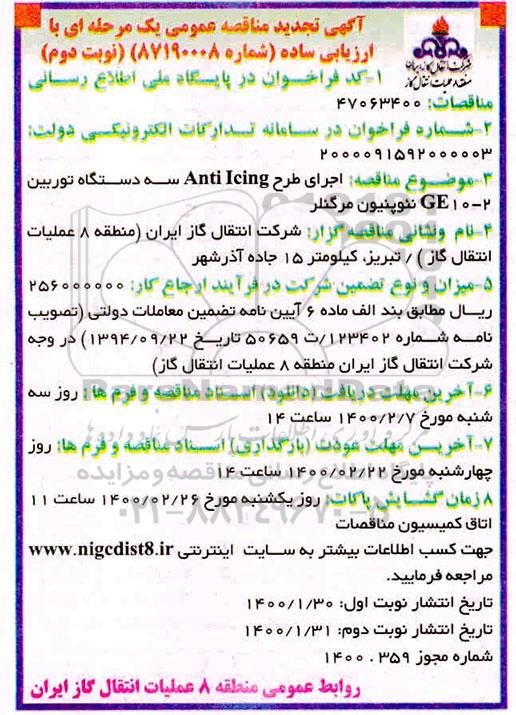 آگهی تجدید مناقصه عمومی یک مرحله ای با
ارزیابی ساده (شماره ۸۷۱۹۰۰۰۸) (نوبت دوم)
شرکت انتقال گاز ایران
منطقه ۸ عملیات انتقال گاز
۱-کد فراخوان در پایگاه ملی اطلاع رسانی
مناقصات: ۴۷۰۶۳۴۰۰
۲-شماره فراخوان در سامانه تدارکات الکترونیکی دولت:
۲۰۰۰۰۹۱۵۹۲۰۰۰۰۰۳
۳-موضوع مناقصه: اجرای طرح Anti Icing سه دستگاه توربین
GE۱۰-۲ نئوپنیون مرگنلر
۴-نام ونشانی مناقصه گزار: شرکت انتقال گاز ایران (منطقه ۸ عملیات
انتقال گاز ) / تبریز، کیلومتر ۱۵ جاده آذرشهر
۵-میزان و نوع تضمین شرکت در فرآیند ارجاع کار: ۲۵۶۰۰۰۰۰۰
ریال مطابق بند الف ماده ۶ آیین نامه تضمین معاملات دولتی (تصویب
نامه شماره ۱۲۳۴۰۲/ت ۵۰۶۵۹ تاریخ ۱۳۹۴/۰۹/۲۲) در وجه
شرکت انتقال گاز ایران منطقه ۸ عملیات انتقال گاز)
۶-آخرین مهلت دریافت (دانلود) اسناد مناقصه و فرم ها: روز سه
شنبه مورخ ۱۴۰۰/۲/۷ ساعت ۱۴
۷-آخرین مهلت عودت (بارگذاری) اسناد مناقصه و فرم ها: روز
چهارشنبه مورخ ۱۴۰۰/۰۲/۲۲ ساعت ۱۴
۸ زمان گشایش پاکات: روز یکشنبه مورخ ۱۴۰۰/۰۲/۲۶ ساعت ۱۱
اتاق کمیسیون مناقصات
جهت کسب اطلاعات بیشتر به سایت اینترنتی www.nigcdist8.ir
مراجعه فرمایید.
تاریخ انتشار نوبت اول: ۱۴۰۰/۱/۳۰
تاریخ انتشار نوبت دوم: ۱۴۰۰/۱/۳۱
شماره مجوز ۳۵۹ . ۱۴۰۰
روابط عمومی منطقه ۸ عملیات انتقال گاز ایران
ParsNamadData
۰۲۱-۸۸۳۴۹۶۷۰-۵